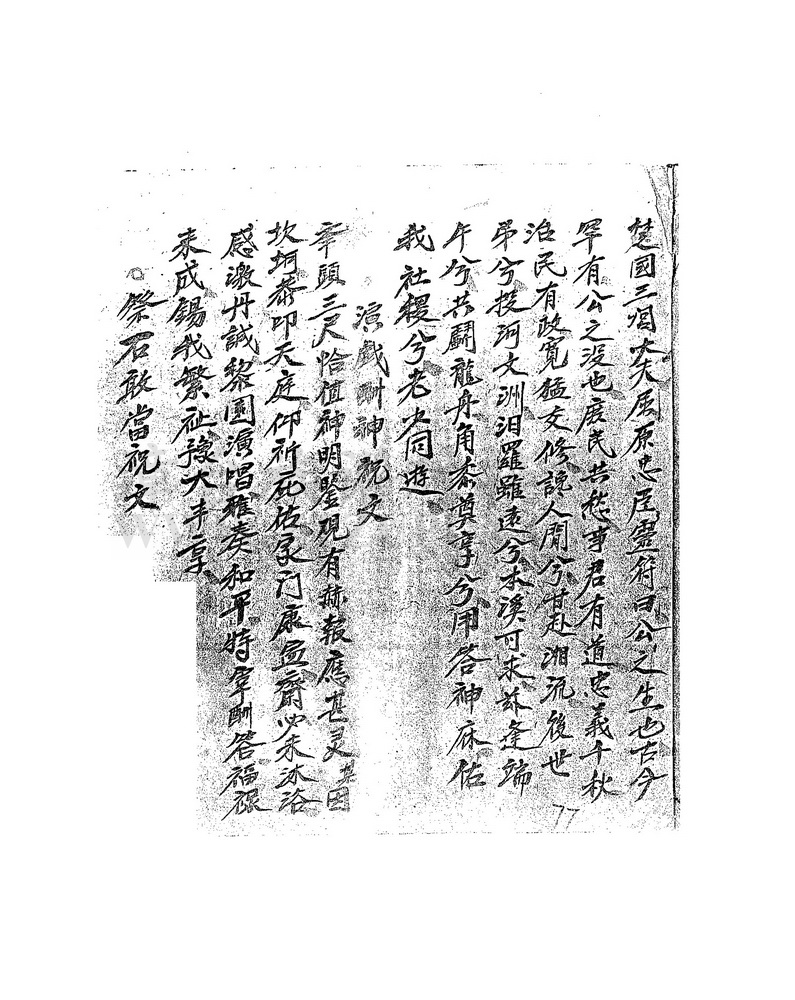 楚國三闾大夫屈原忠臣靈符曰公之生也古今
罕有公之沒也庶民共愁事君有道忠義千秋
治民有政寬猛交修說人間兮甘赴湘流後世
弔兮投河文洲汨羅雖遠兮本溪可求玆逢端
午兮共鬭龍舟角黍奠享兮用答神庥佑
我社稷兮老少同遊
演戲酬神祝文
舉頭三尺恰值神明鑒观有赫報應甚灵某因
坎坷恭叩天庭仰祈庇佑家门康盈齋心未沐浴
感激丹誠黎園演唱雅奏和平特宰酬答福祿
来成錫我繁祉豫大丰享
祭石敢當祝文
77